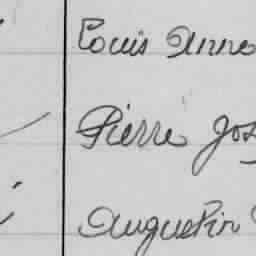 Louis Anne
Pierre Jos
Augustin